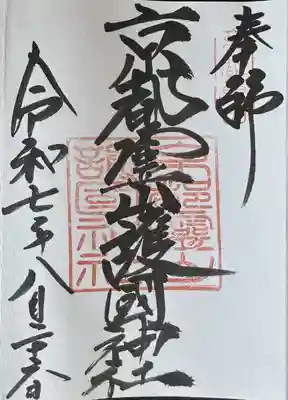 奉拝
京都霊山護國神社
令和七年八月二十六日